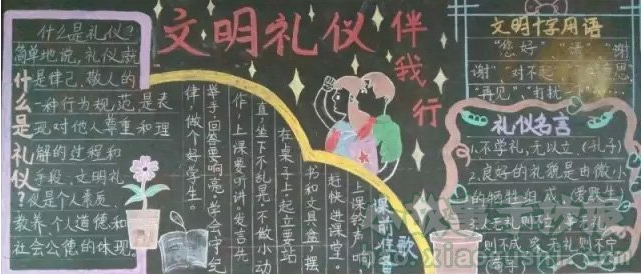 文明礼仪伴我行
什么是礼仪
什么是礼仪?
简单地说,礼仪就
是律己,敬人的
一种行为规范,是表
现对他人尊重和理
解的过程和
手段,文明礼
仪是个人素质、
教养,个人道德和
社会公德的体现。
课前准备歌
上课铃声响,
赶快进课堂。
书和文具盒,摆
在桌子上。起立要站
直,坐下不乱晃。不做小动
作,上课要听讲。发言先
举手,回答要响亮。学会守纪
律,做个好学生。
文明十字用语
“您好”“请”“谢
谢”“对不起”
“再见”“打扰一
礼仪名言
1.不学礼,无以立。(孔子)
2.良好的礼貌是由微小
的牺牲组成。(爱默生)
人无礼则不 事无礼
则不成 无礼则不宁
(荀子)